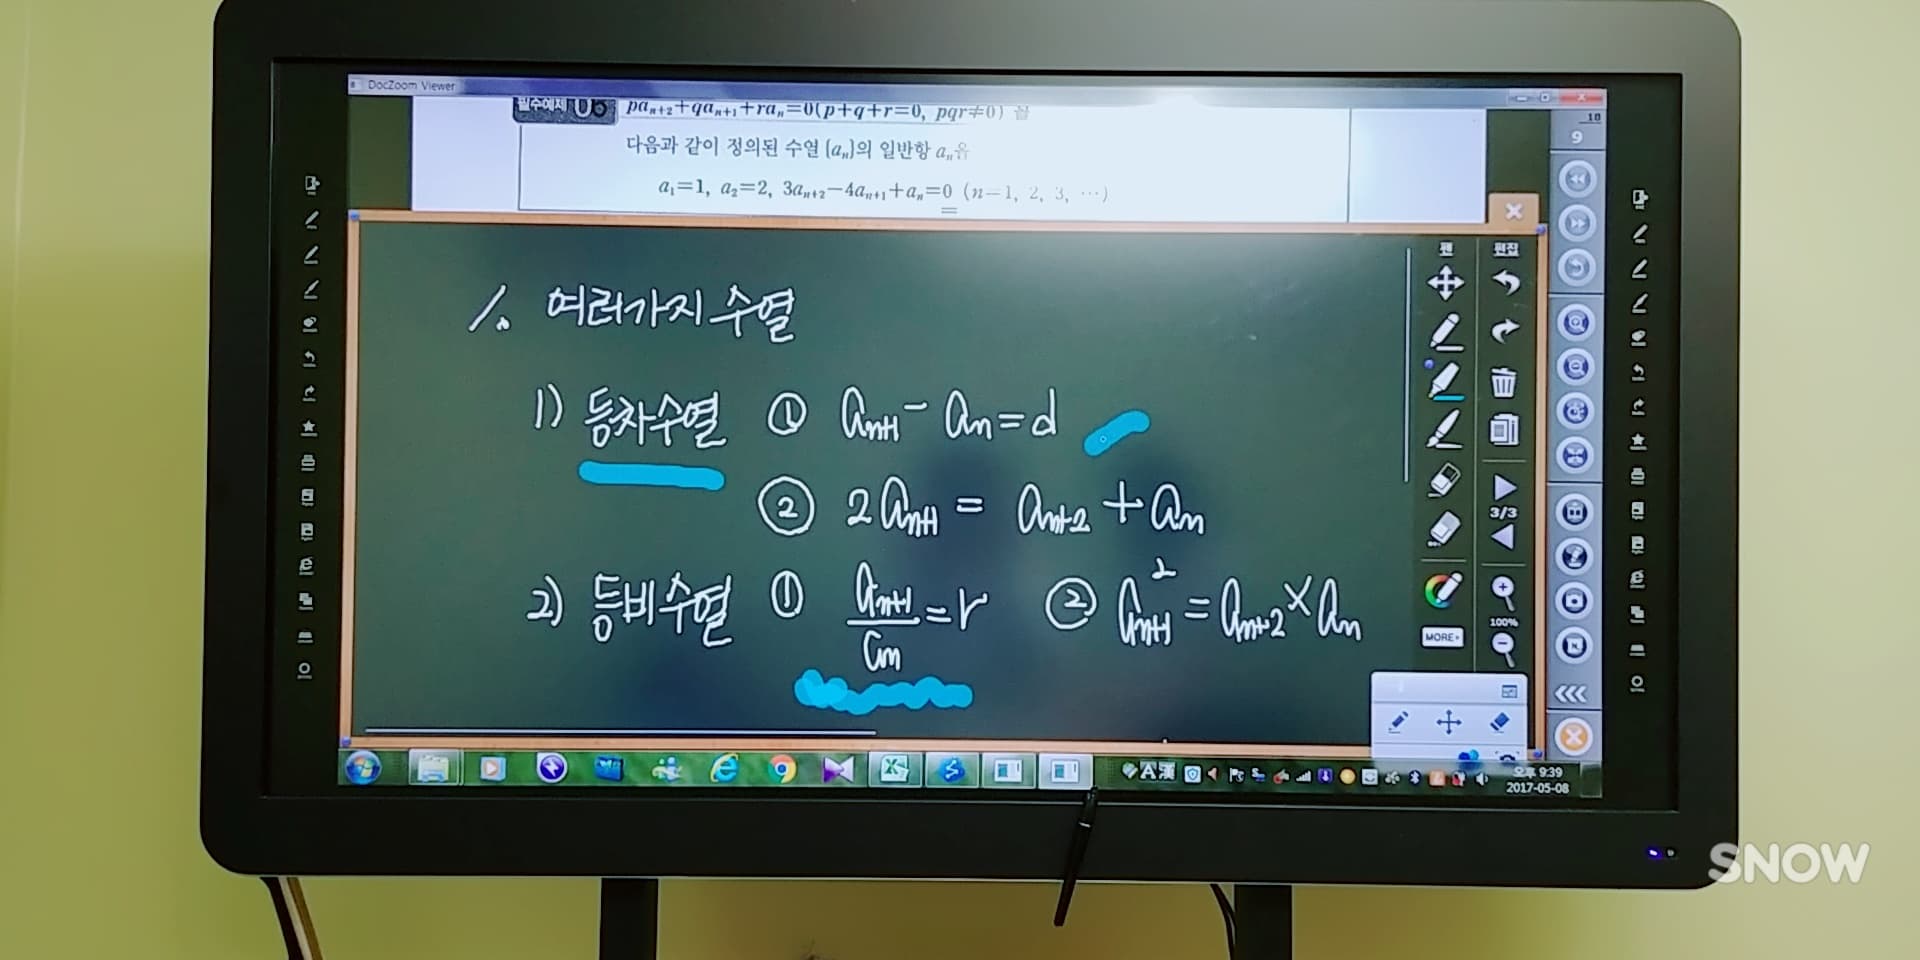 DocZoom Viewer
필수예제 06 paₙ₊₂+qaₙ₊₁+raₙ=0(p+q+r=0, pqr≠0) 꼴
다음과 같이 정의된 수열 {aₙ}의 일반항 aₙ을
a₁=1, a₂=2, 3aₙ₊₂−4aₙ₊₁+aₙ=0 (n=1, 2, 3, ⋯)
10
9
펜 편집
1. 여러가지 수열
1) 등차수열 ① aₙ₊₁ - aₙ = d
② 2aₙ₊₁ = aₙ₊₂ + aₙ
2) 등비수열 ① aₙ₊₁/aₙ = r ② aₙ₊₁² = aₙ₊₂ × aₙ
3/3
100%
MORE
A 漢
오후 9:39
2017-05-08
SNOW